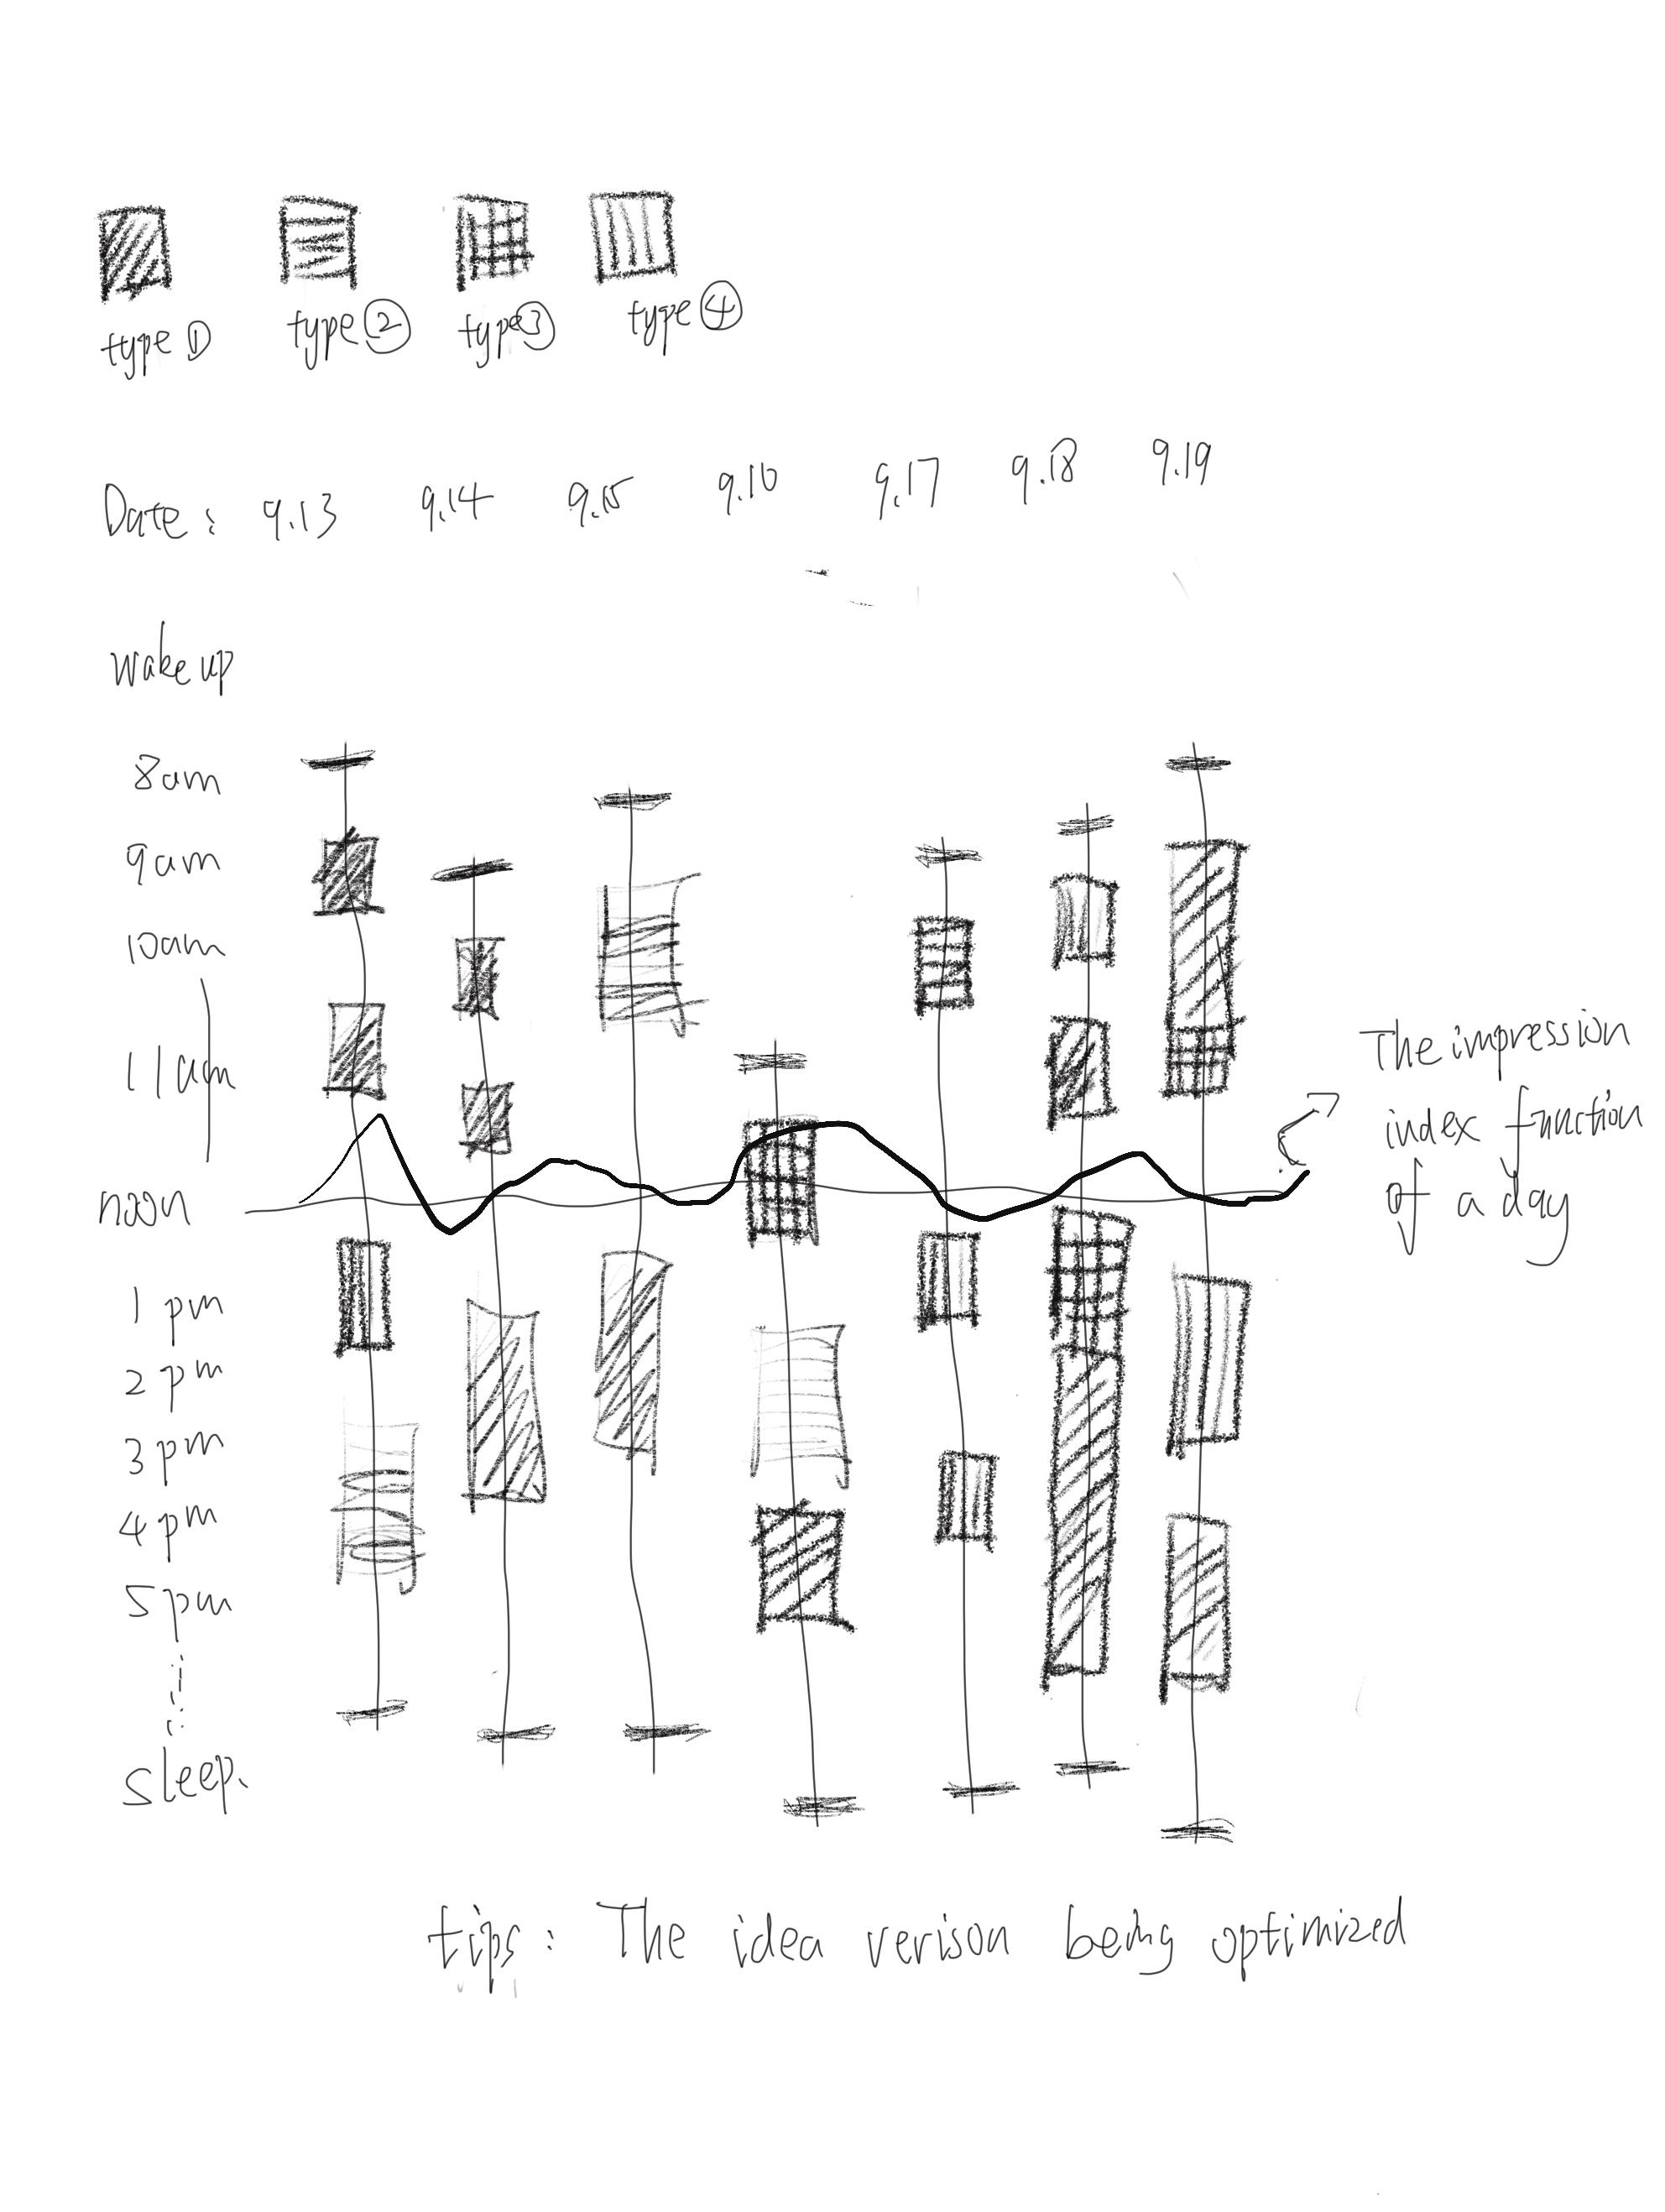 type ①
type ②
type ③
type ④
Date: 9.13 9.14 9.15 9.10 9.17 9.18 9.19
wake up
8am
9am
10am
11am
noon
1 pm
2 pm
3 pm
4 pm
5 pm
sleep.
The impression
index function
of a day
tips: The idea verison being optimized